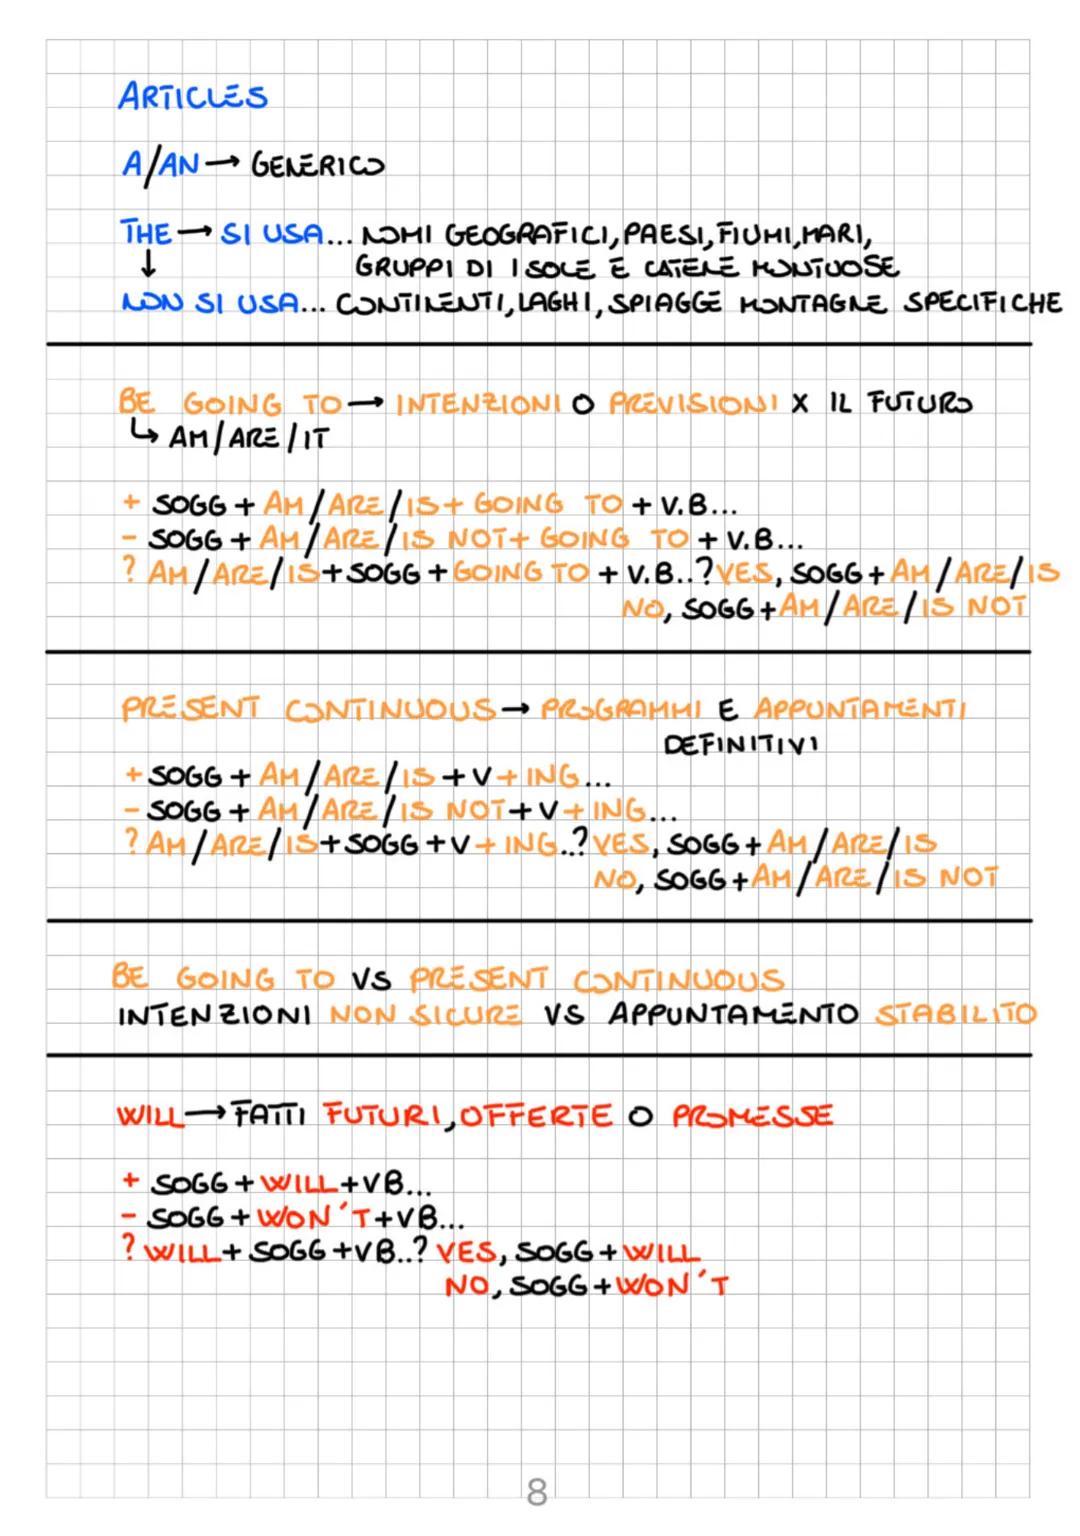 ARTICLES
A/AN → GENERICO
THE → SI USA... NOMI GEOGRAFICI, PAESI, FIUMI, MARI,
↓ GRUPPI DI ISOLE E CATENE MONTUOSE
NON SI USA... CONTINENTI, LAGHI, SPIAGGE MONTAGNE SPECIFICHE
BE GOING TO → INTENZIONI O PREVISIONI X IL FUTURO
↳ AM/ARE/IT
+ SOGG + AM/ARE/IS + GOING TO + V.B...
- SOGG + AM/ARE/IS NOT + GOING TO + V.B...
? AM/ARE/IS + SOGG + GOING TO + V.B..? YES, SOGG + AM/ARE/IS
NO, SOGG + AM/ARE/IS NOT
PRESENT CONTINUOUS → PROGRAMMI E APPUNTAMENTI
DEFINITIVI
+ SOGG + AM/ARE/IS + V + ING...
- SOGG + AM/ARE/IS NOT + V + ING...
? AM/ARE/IS + SOGG + V + ING..? YES, SOGG + AM/ARE/IS
NO, SOGG + AM/ARE/IS NOT
BE GOING TO VS PRESENT CONTINUOUS
INTENZIONI NON SICURE VS APPUNTAMENTO STABILITO
WILL → FATTI FUTURI, OFFERTE O PROMESSE
+ SOGG + WILL + VB...
- SOGG + WON'T + VB...
? WILL + SOGG + VB..? YES, SOGG + WILL
NO, SOGG + WON'T
8